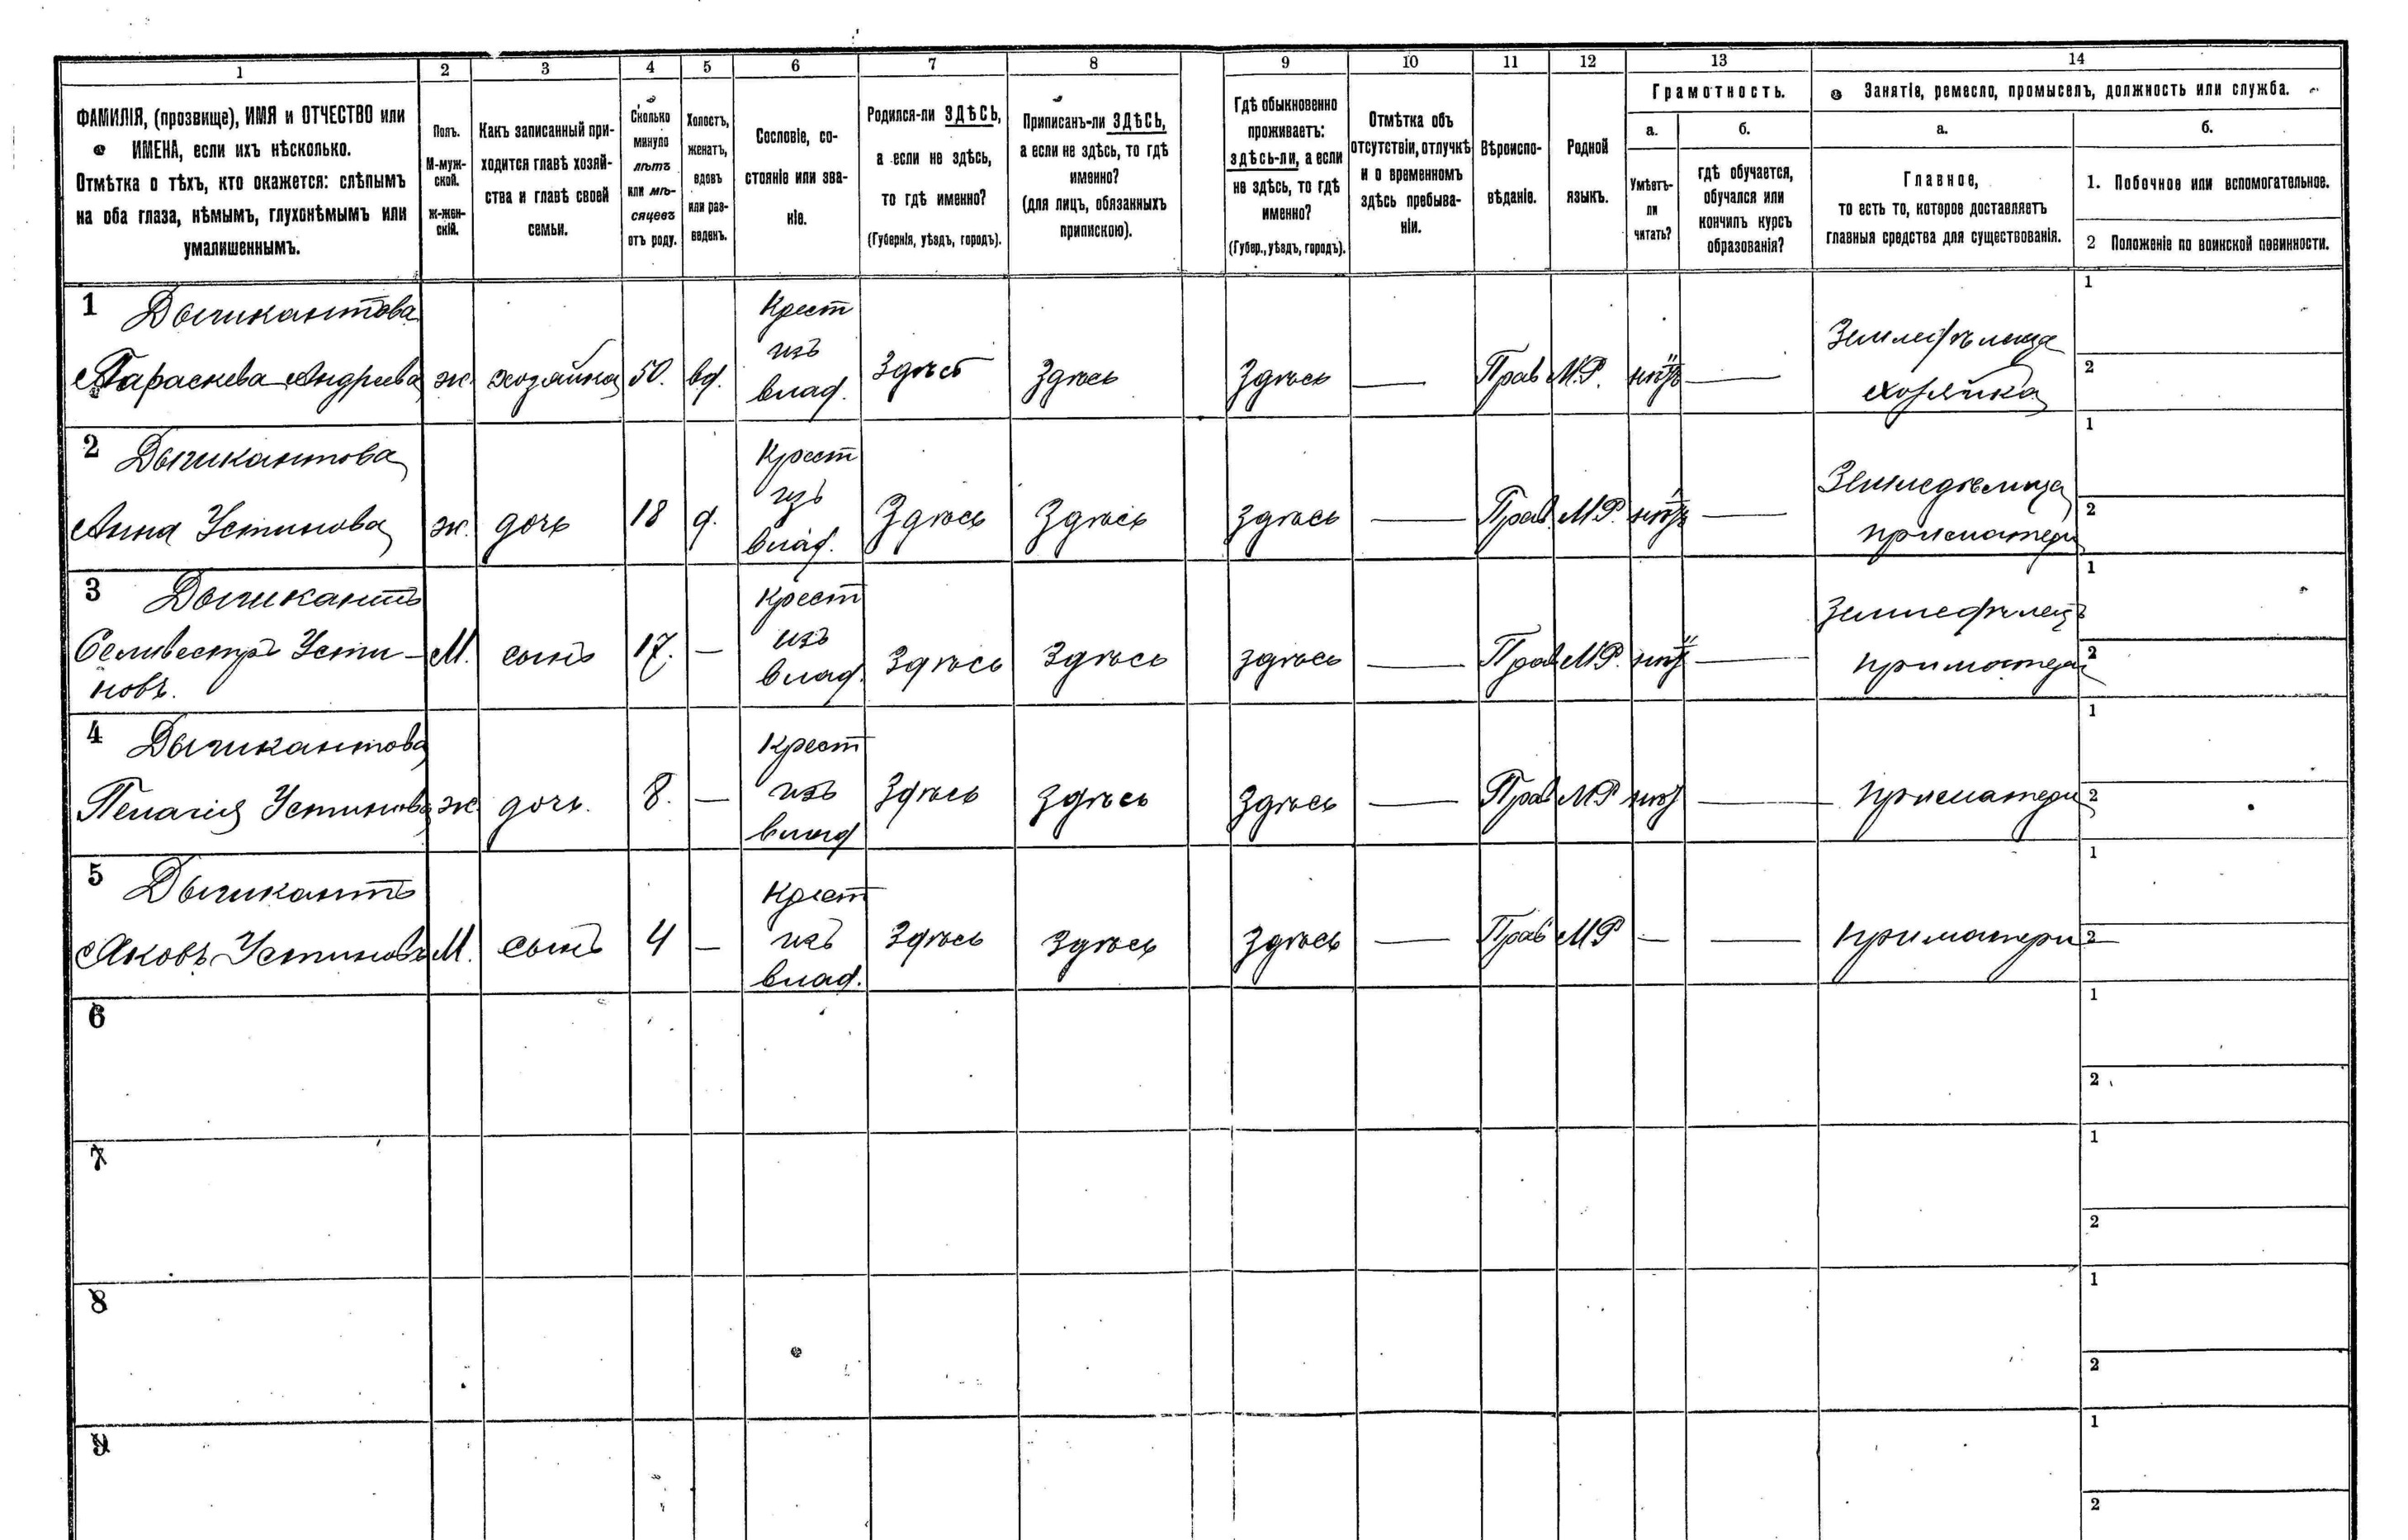 1 2 3 4 5 6 7 8 9 10 11 12 13 14
ФАМИЛІЯ, (прозвище), ИМЯ и ОТЧЕСТВО или
ИМЕНА, если ихъ нѣсколько.
Отмѣтка о тѣхъ, кто окажется: слѣпымъ
на оба глаза, нѣмымъ, глухонѣмымъ или
умалишеннымъ.
Полъ.
М-муж-
ской.
ж-жен-
скій.
Какъ записанный при-
ходится главѣ хозяй-
ства и главѣ своей
семьи.
Сколько
минуло
лѣтъ
или мѣ-
сяцевъ
отъ роду.
Холостъ,
женатъ,
вдовъ
или раз-
веденъ.
Сословіе, со-
стояніе или зва-
ніе.
Родился-ли ЗДѢСЬ,
а если не здѣсь,
то гдѣ именно?
(Губернія, уѣздъ, городъ).
Приписанъ-ли ЗДѢСЬ,
а если не здѣсь, то гдѣ
именно?
(для лицъ, обязанныхъ
припискою).
Гдѣ обыкновенно
проживаетъ:
здѣсь-ли, а если
не здѣсь, то гдѣ
именно?
(Губер., уѣздъ, городъ).
Отмѣтка объ
отсутствіи, отлучкѣ
и о временномъ
здѣсь пребыва-
ніи.
Вѣроиспо-
вѣданіе.
Родной
языкъ.
Грамотность.
а.
Умѣетъ-
ли
читать?
б.
гдѣ обучается,
обучался или
кончилъ курсъ
образованія?
Занятіе, ремесло, промыселъ, должность или служба.
а.
Главное,
то есть то, которое доставляетъ
главныя средства для существованія.
б.
1. Побочное или вспомогательное.
2 Положеніе по воинской повинности.
1 Дыгикантова
Параскева Андреева
ж.
хозяйка
50.
вд.
Крест
изъ
влад.
Здѣсь
Здѣсь
Здѣсь
—
Прав
М.Р.
нѣтъ
—
Земледѣлица
хозяйка
1
2
2 Дыгикантова
Анна Устинова
ж.
дочь
18
д.
Крест
изъ
влад.
Здѣсь
Здѣсь
Здѣсь
—
Прав.
М.Р.
нѣтъ
—
Земледѣлица
при матери
1
2
3 Дыгикантъ
Селивестръ Усти-
новъ.
М.
сынъ
17.
—
Крест
изъ
влад.
Здѣсь
Здѣсь
Здѣсь
—
Прав
М.Р.
нѣт
—
Земледѣлецъ
при матери
1
2
4 Дыгикантова
Пелагія Устинова
ж.
дочь.
8.
—
Крест
изъ
влад
Здѣсь
Здѣсь
Здѣсь
—
Прав
М.Р
нѣт
—
при матери
1
2
5 Дыгикантъ
Яковъ Устиновъ
М.
сынъ
4
—
Крест
изъ
влад.
Здѣсь
Здѣсь
Здѣсь
—
Прав
М.Р
—
—
при матери
1
2
6
1
2
7
1
2
8
1
2
9
1
2